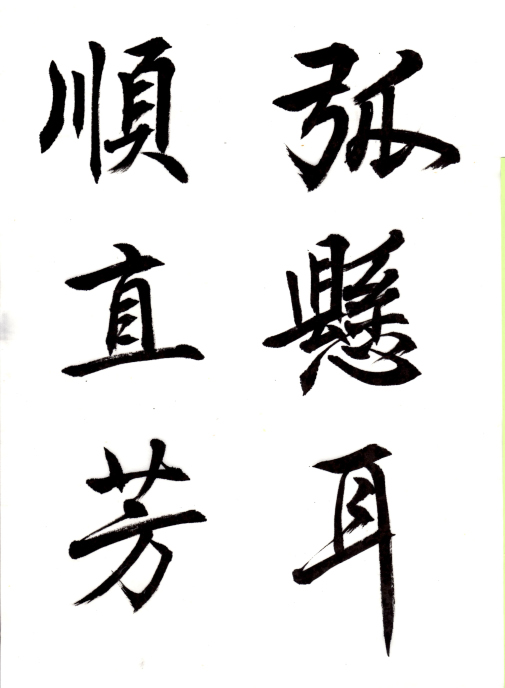 弧懸耳
順直芳